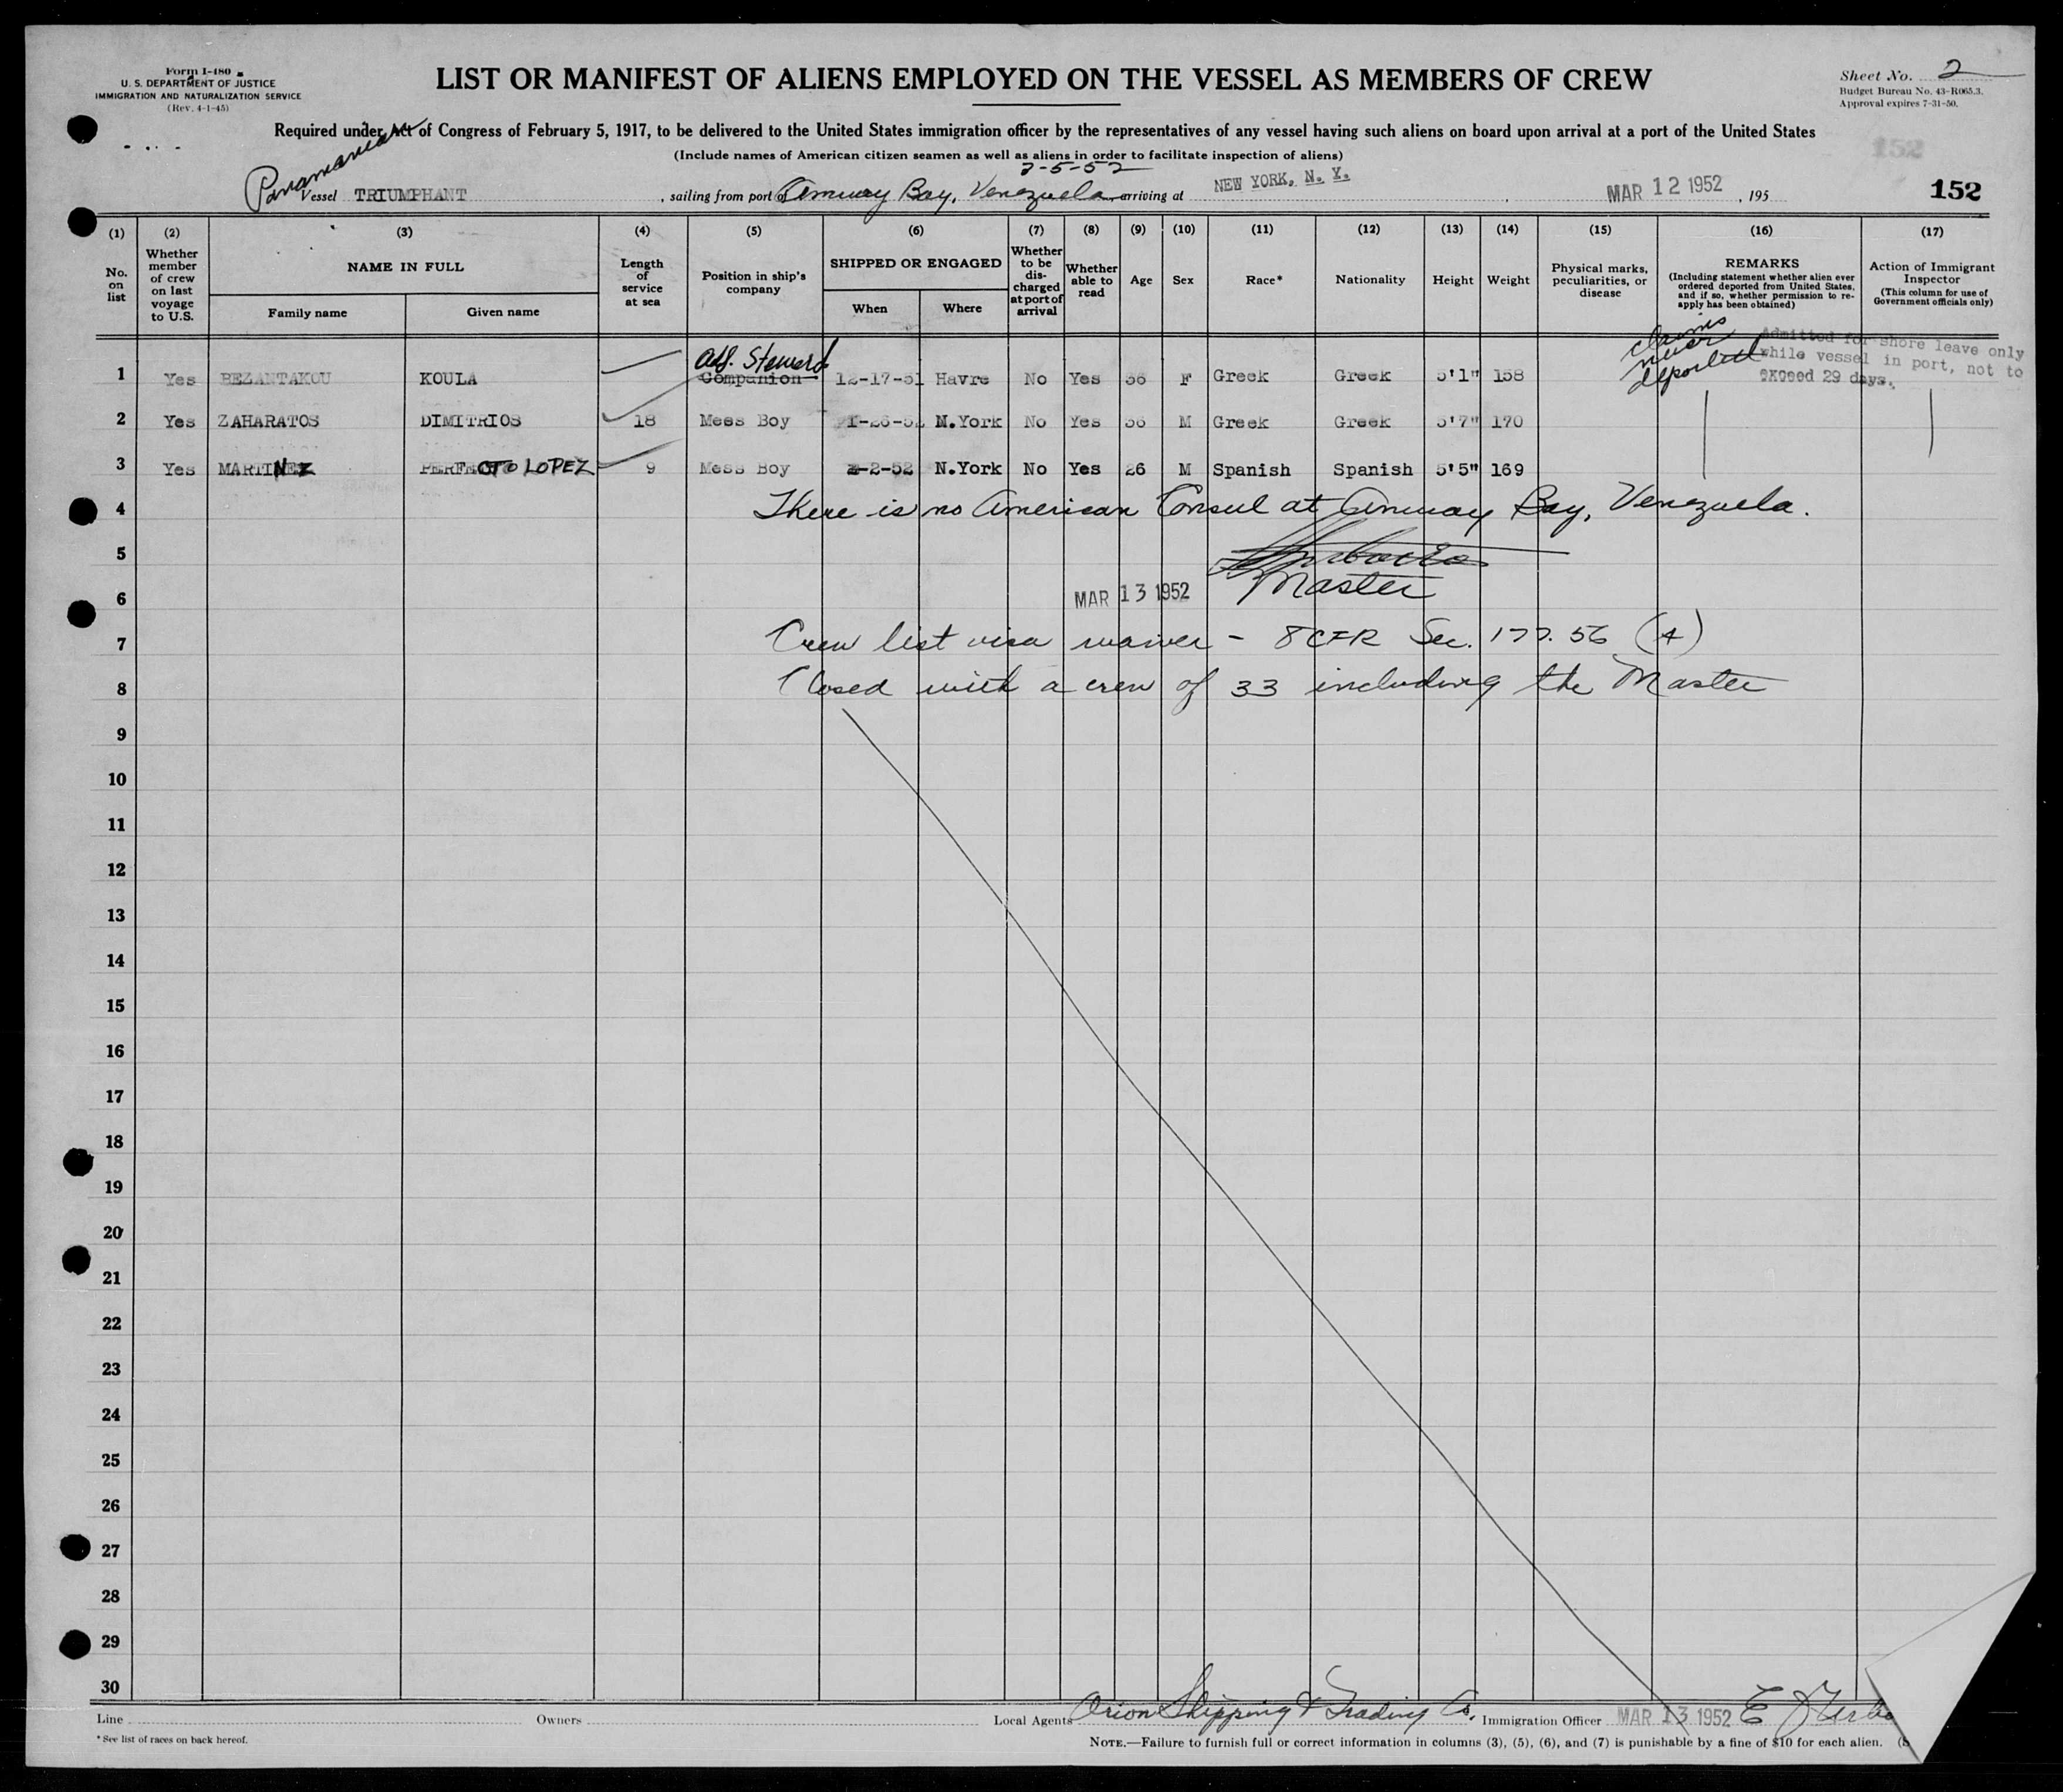 Form I-480
U. S. DEPARTMENT OF JUSTICE
IMMIGRATION AND NATURALIZATION SERVICE
(Rev. 4-1-45)
LIST OR MANIFEST OF ALIENS EMPLOYED ON THE VESSEL AS MEMBERS OF CREW
Sheet No. 2
Budget Bureau No. 43-R065.3.
Approval expires 7-31-50.
Required under Act of Congress of February 5, 1917, to be delivered to the United States immigration officer by the representatives of any vessel having such aliens on board upon arrival at a port of the United States
(Include names of American citizen seamen as well as aliens in order to facilitate inspection of aliens)
152
Panamanian
3-5-52
Vessel TRIUMPHANT, sailing from port of Amuay Bay, Venezuela arriving at NEW YORK, N. Y. MAR 12 1952, 195 152
(1) (2) (3) (4) (5) (6) (7) (8) (9) (10) (11) (12) (13) (14) (15) (16) (17)
No. on list
Whether member of crew on last voyage to U.S.
NAME IN FULL
Family name
Given name
Length of service at sea
Position in ship's company
SHIPPED OR ENGAGED
When
Where
Whether to be discharged at port of arrival
Whether able to read
Age
Sex
Race*
Nationality
Height
Weight
Physical marks, peculiarities, or disease
REMARKS
(Including statement whether alien ever ordered deported from United States, and if so, whether permission to reapply has been obtained)
Action of Immigrant Inspector
(This column for use of Government officials only)
claims never deported
Admitted for shore leave only
while vessel in port, not to
exceed 29 days.
Adj. Steward
1 Yes BEZANTAKOU KOULA Companion 12-17-51 Havre No Yes 36 F Greek Greek 5'1" 158
2 Yes ZAHARATOS DIMITRIOS 18 Mess Boy 1-26-52 N.York No Yes 36 M Greek Greek 5'7" 170
3 Yes MARTINEZ PERFECTO LOPEZ 9 Mess Boy 2-2-52 N.York No Yes 26 M Spanish Spanish 5'5" 169
4 There is no American Consul at Amuay Bay, Venezuela.
5
6 MAR 13 1952 Master
7 Crew list visa waiver - 8 CFR Sec. 177.56 (4)
8 Closed with a crew of 33 including the Master
9
10
11
12
13
14
15
16
17
18
19
20
21
22
23
24
25
26
27
28
29
30
Line Owners Local Agents Orion Shipping & Trading Co. Immigration Officer MAR 13 1952 E
* See list of races on back hereof.
NOTE.—Failure to furnish full or correct information in columns (3), (5), (6), and (7) is punishable by a fine of $10 for each alien.